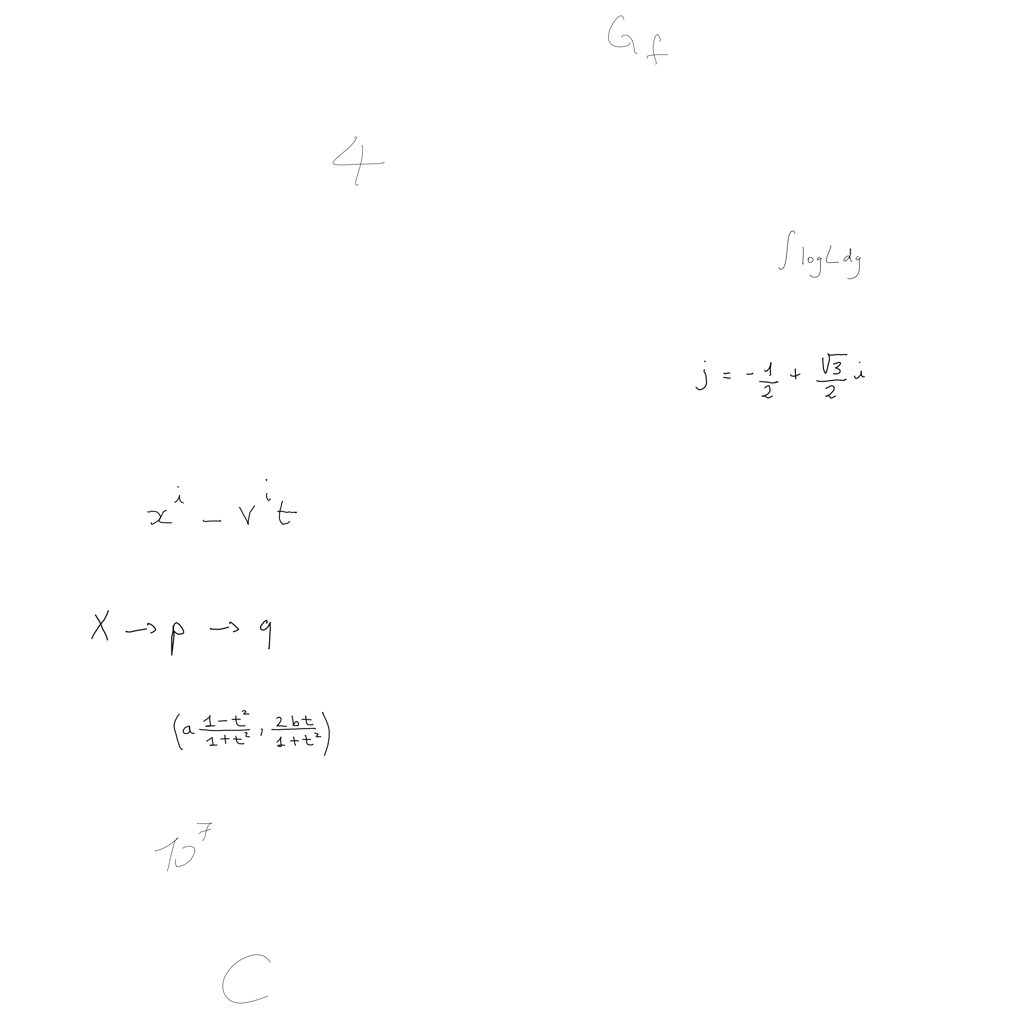 G_f
4
∫ log L dg
j = -\frac{1}{2} + \frac{\sqrt{3}}{2} i
x^i - v^i t
X → p → q
(a \frac{1-t^2}{1+t^2}, \frac{2bt}{1+t^2})
10^7
C